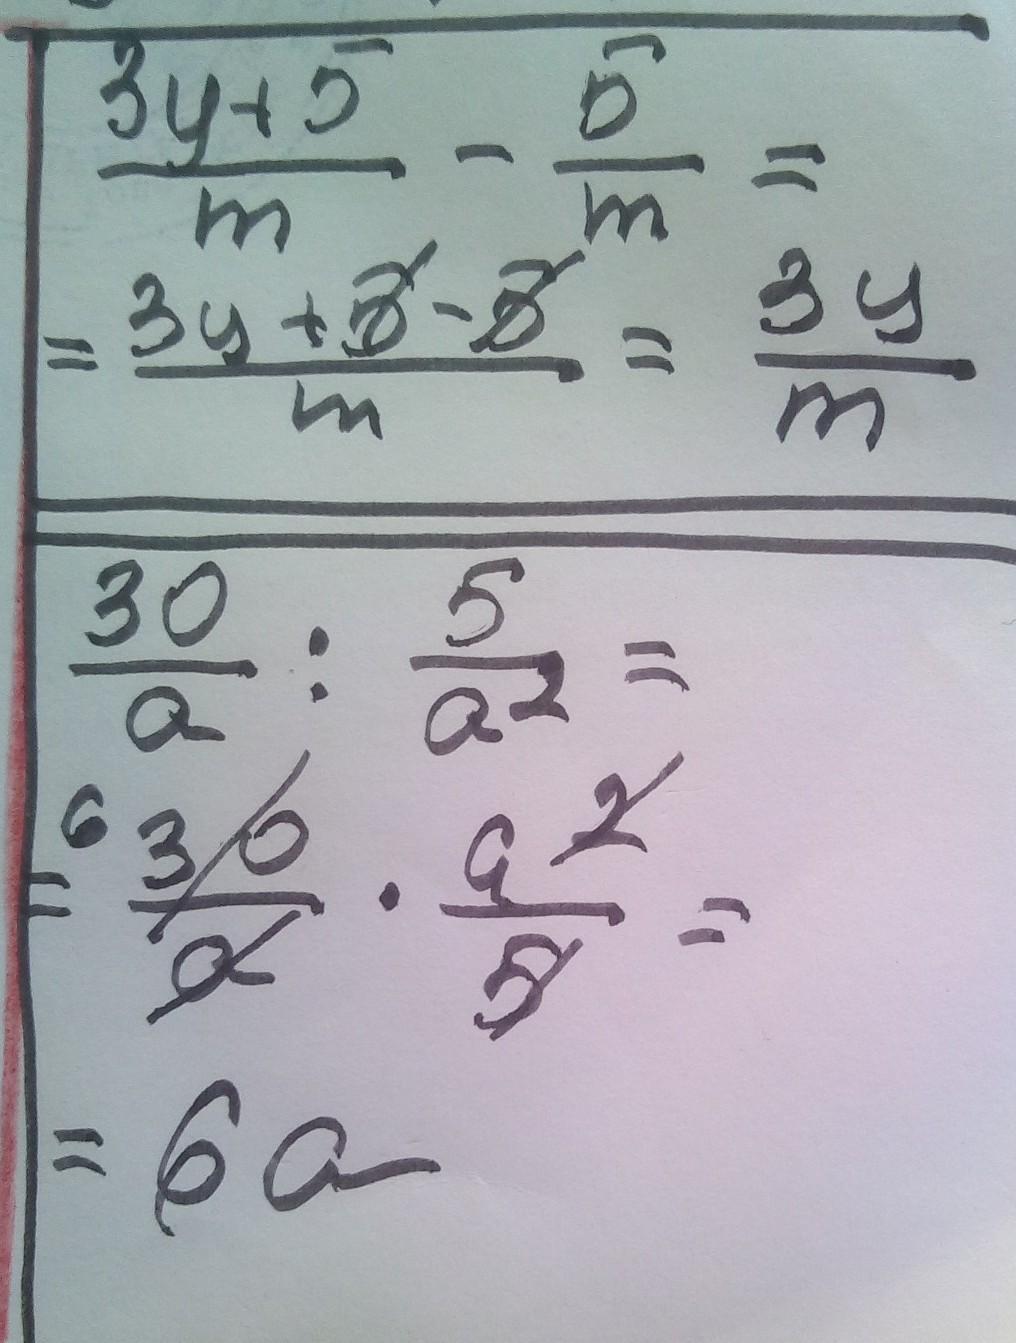 (3y+5)/m - 5/m =
= (3y+5-5)/m = 3y/m
30/a : 5/a² =
= 6 30/a · a²/5 =
= 6a